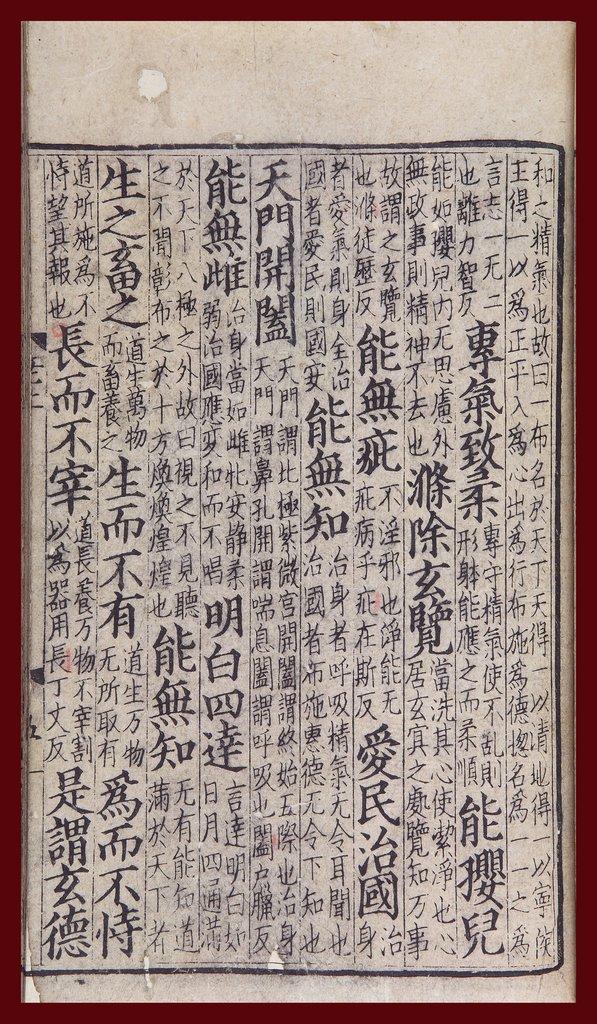 和之精氣也故曰一布名於天下天得一以清地得一以寧侯
王得一以為正平入為心出為行布施為德揔名為一一之為
言志一无二也離力智反專氣致柔專守精氣使不乱則形躰能應之而柔順能孾兒
能如孾兒内无思慮外無政事則精神不去也滌除玄覽當洗其心使潔淨也心居玄㝠之處覽知万事
故謂之玄覽也滌徒歷反能無疵不淫邪也淨能无疵病乎疵在斯反愛民治國治身
者愛氣則身全治國者愛民則國安能無知治身者呼吸精氣无令耳聞也治國者布施惠德无令下知也
天門開闔天門謂比極紫微宮開闔謂終始五際也治身天門謂鼻孔開謂喘息闔謂呼吸也闔户臘反
能無雌治身當如雌牝安静柔弱治國應变和而不唱明白四達言達明白如日月四通滿
於天下八極之外故曰視之不見聽之不聞彰布之於十方煥煥煌煌也能無知无有能知道滿於天下者
生之畜之道生萬物而畜養之生而不有道生万物无所取有為而不恃
道所施為不恃望其報也長而不宰道長養万物不宰割以為器用長丁丈反是謂玄德